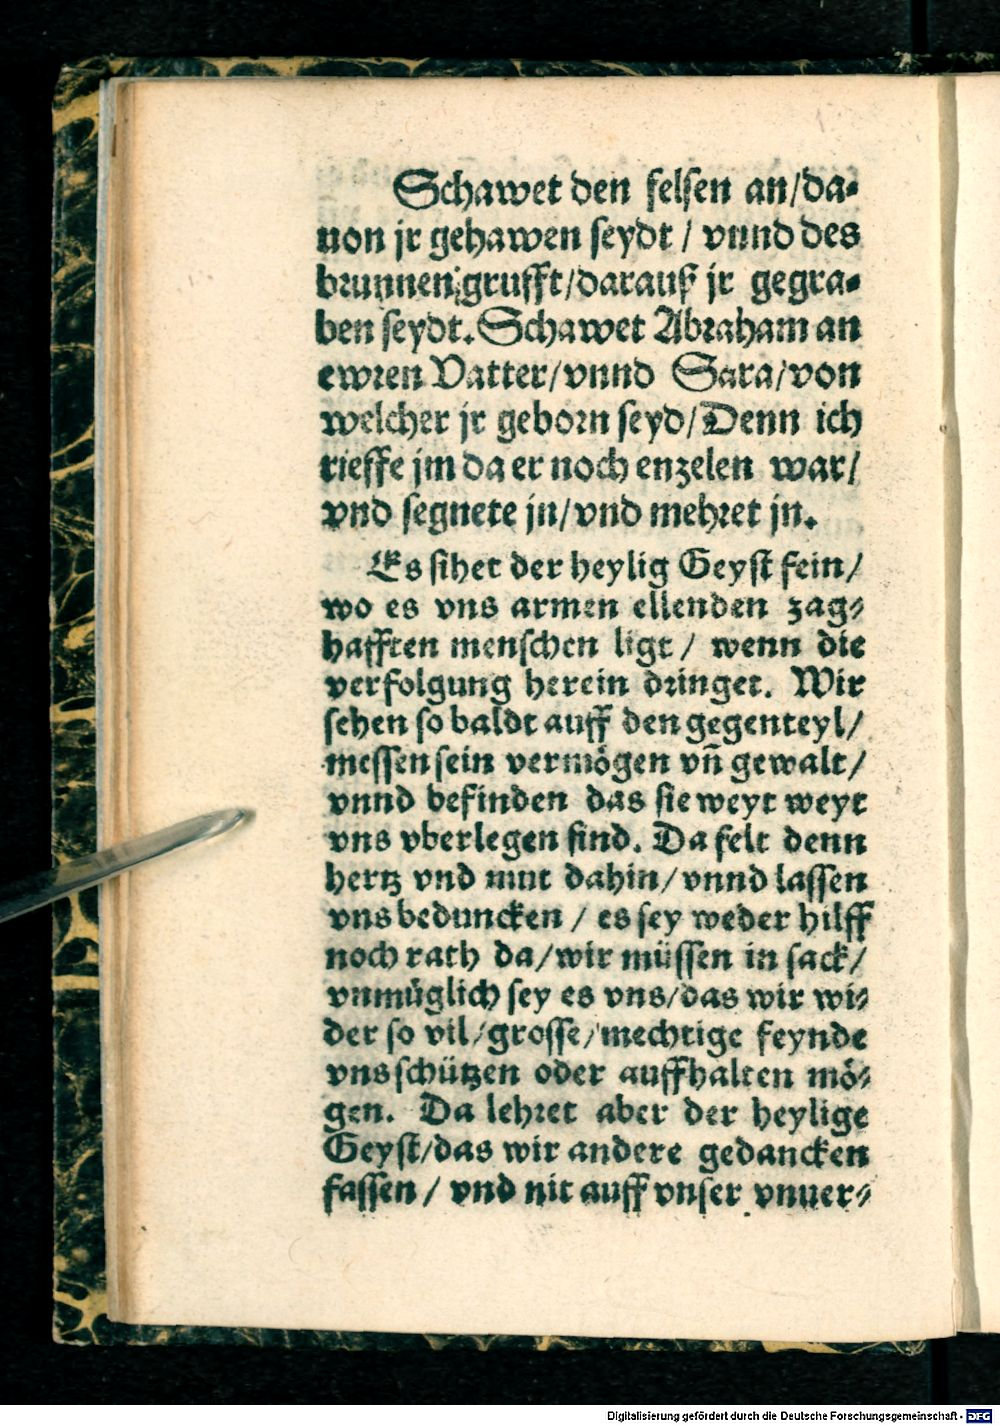 Schawet den felsen an/da-
uon jr gehawen seydt / vnnd des
brunnen grufft/darauß jr gegra-
ben seydt. Schawet Abraham an
ewren Vatter/vnnd Sara/von
welcher jr geborn seyd/Denn ich
rieffe jm da er noch enzelen war/
vnd segnete jn/vnd mehret jn.
Es sihet der heylig Geyst fein/
wo es vns armen ellenden zag-
hafften menschen ligt / wenn die
verfolgung herein dringet. Wir
sehen so baldt auff den gegenteyl/
messen sein vermögen vñ gewalt/
vnnd befinden das sie weyt weyt
vns vberlegen sind. Da felt denn
hertz vnd mut dahin/vnnd lassen
vns beduncken / es sey weder hilff
noch rath da/wir müssen in sack/
vnmüglich sey es vns/das wir wi-
der so vil/grosse/mechtige feynde
vns schützen oder auffhalten mö-
gen. Da lehret aber der heylige
Geyst/das wir andere gedancken
fassen / vnd nit auff vnser vnuer-
Digitalisierung gefördert durch die Deutsche Forschungsgemeinschaft - DFG